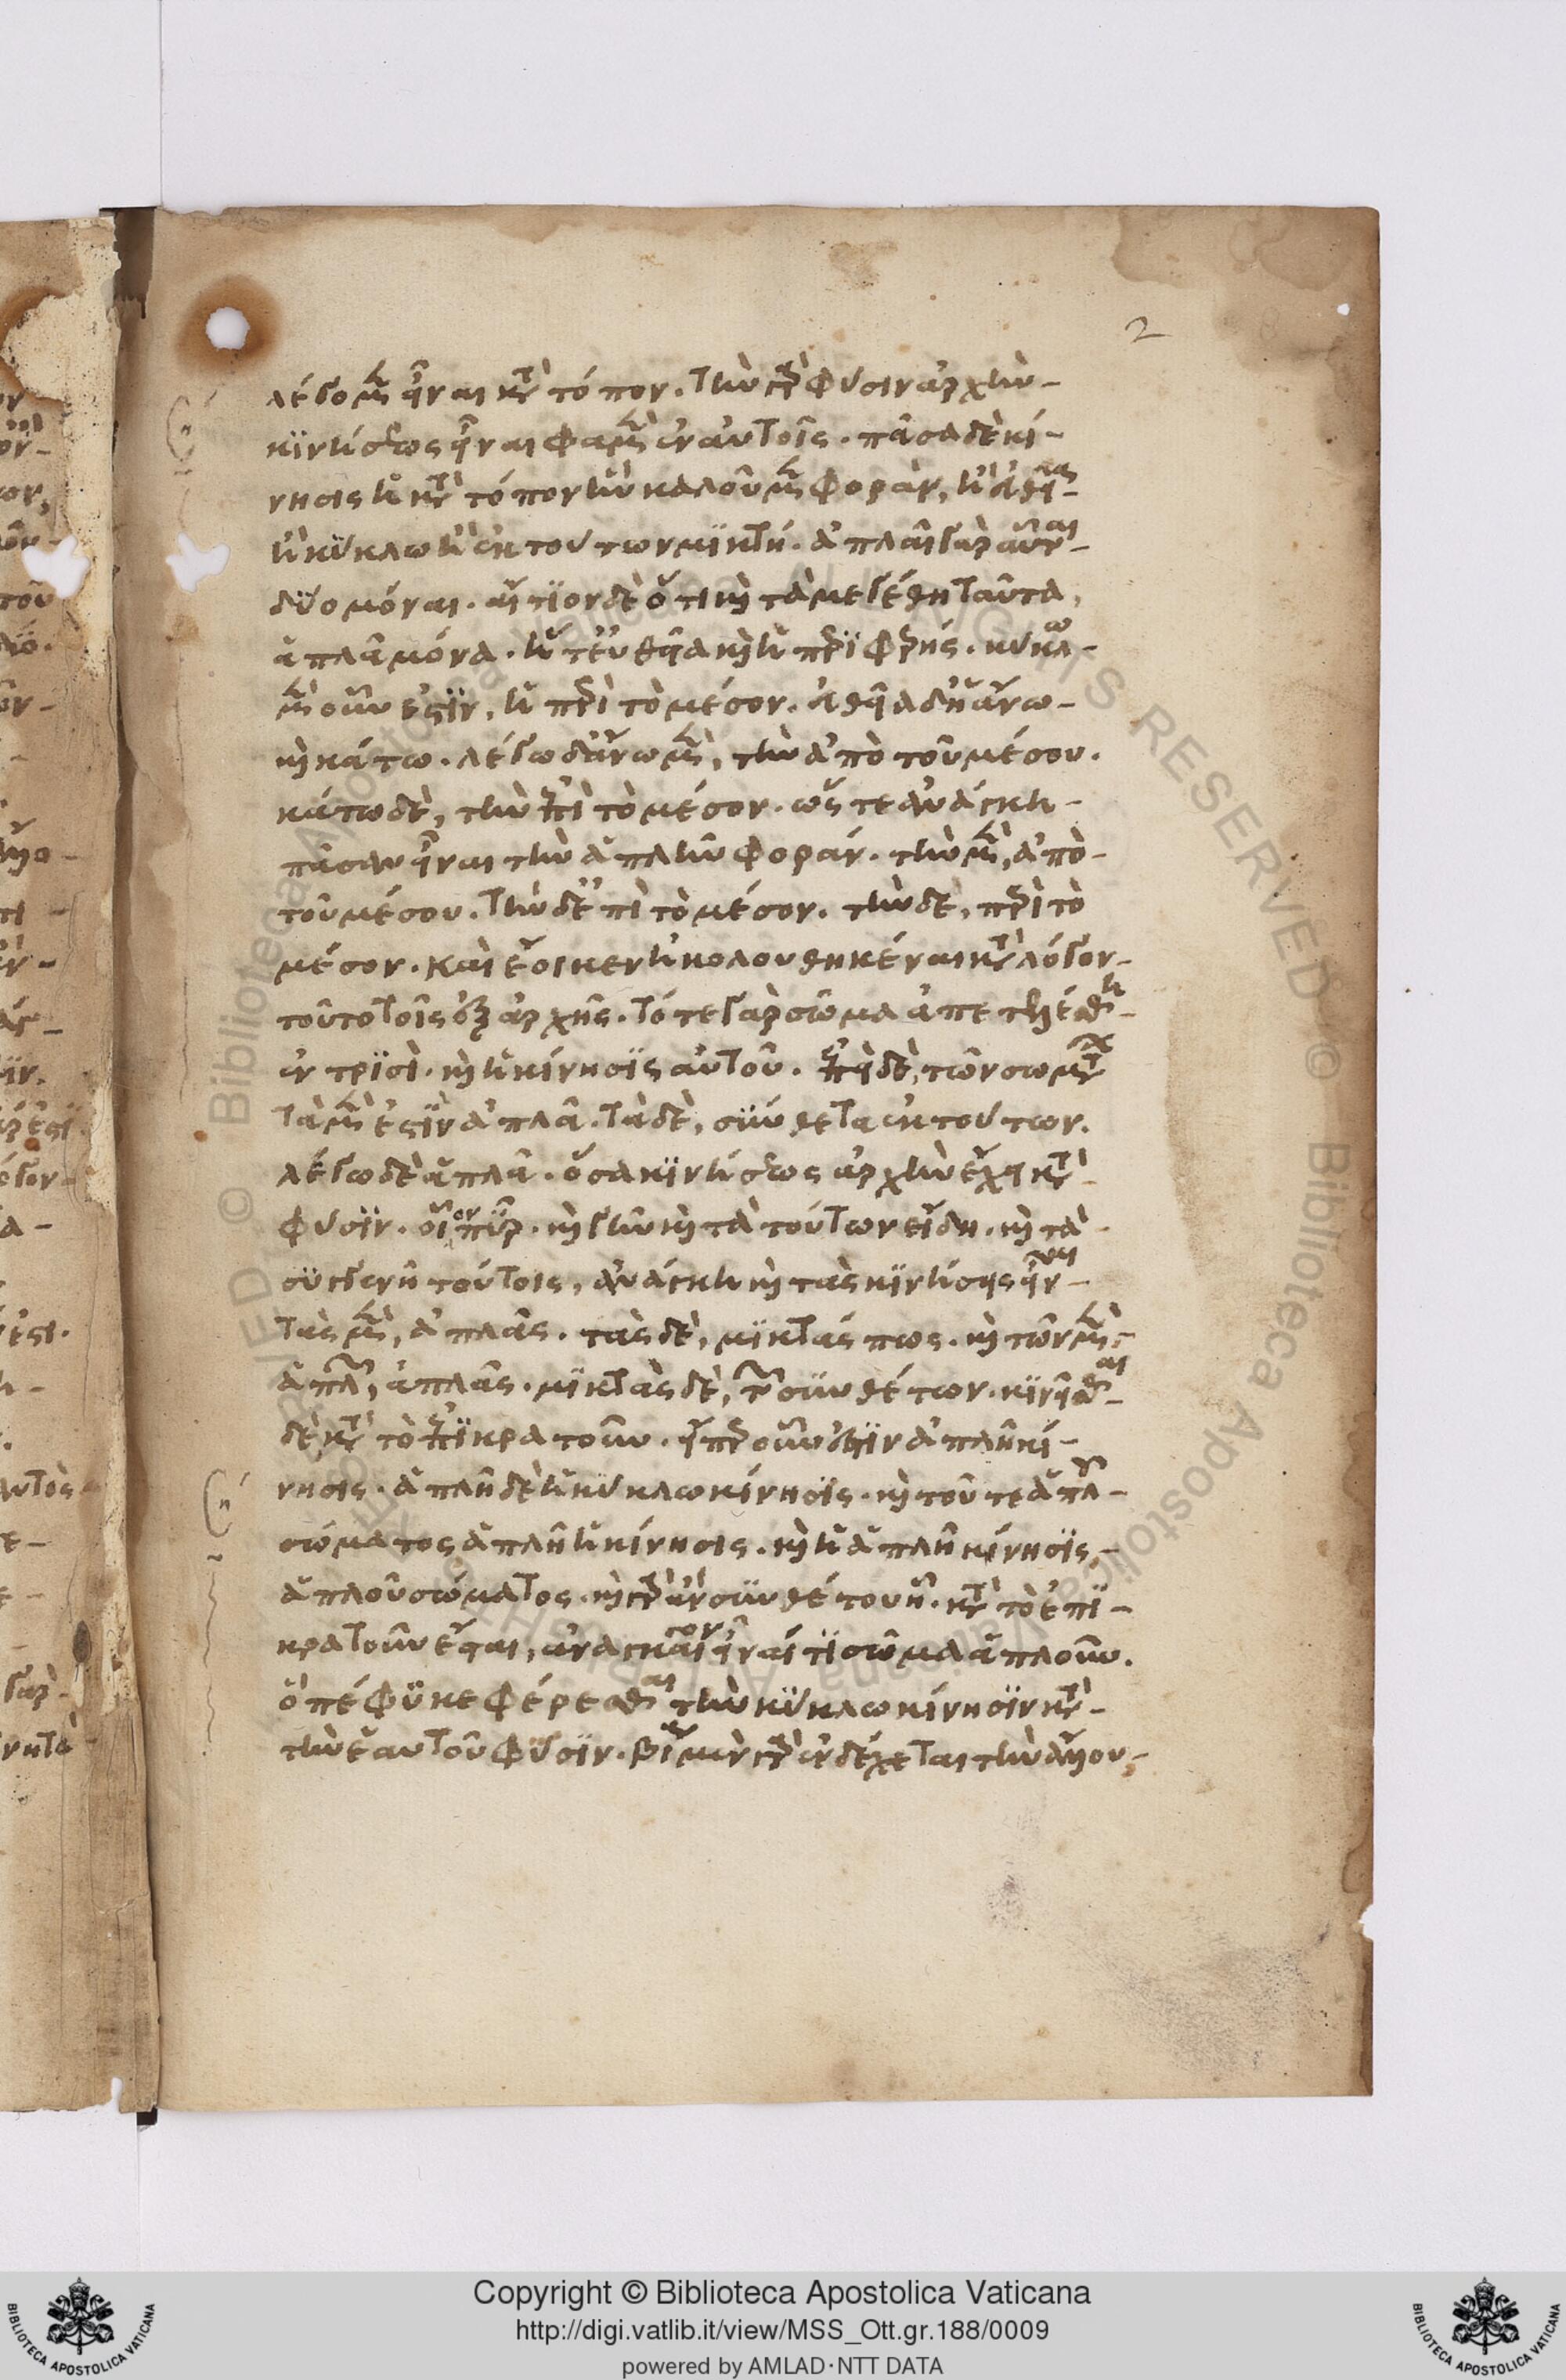 2
λέγομεν εἶναι κατὰ τόπον. τὴν γὰρ φύσιν ἀρχὴν
κινήσεως εἶναι φαμὲν ἐν αὐτοῖς. πᾶσα δὲ κί-
νησις ἡ κατὰ τόπον ἣν καλοῦμεν φορὰν, ἢ εὐθεῖα
ἢ κύκλω ἢ ἐκ τούτων μικτή. ἁπλαῖ γὰρ αὗται
δύο μόναι. αἴτιον δὲ ὅτι καὶ τὰ μεγέθη ταῦτα,
ἁπλᾶ μόνα. ἥ τε εὐθεῖα καὶ ἡ περιφερής. κύκλω
μὲν οὖν ἐστὶν, ἡ περὶ τὸ μέσον. εὐθεῖα δ' ἡ ἄνω
καὶ κάτω. λέγω δ' ἄνω μὲν, τὴν ἀπὸ τοῦ μέσου.
κάτω δὲ, τὴν ἐπὶ τὸ μέσον. ὥστε ἀνάγκη
πᾶσαν εἶναι τὴν ἁπλῆν φοράν. τὴν μὲν, ἀπὸ
τοῦ μέσου. τὴν δὲ ἐπὶ τὸ μέσον. τὴν δὲ, περὶ τὸ
μέσον. καὶ ἔοικεν ἠκολουθηκέναι κατὰ λόγον
τοῦτο τοῖς ἐξ ἀρχῆς. τό τε γὰρ σῶμα ἀπετελέσθη
ἐν τρισὶ. καὶ ἡ κίνησις αὐτοῦ. ἐπεὶ δὲ, τῶν σωμάτων
τὰ μὲν ἐστὶν ἁπλᾶ. τὰ δὲ, σύνθετα ἐκ τούτων.
λέγω δὲ ἁπλᾶ. ὅσα κινήσεως ἀρχὴν ἔχει κατὰ
φύσιν. οἷον πῦρ. καὶ γῆν καὶ τὰ τούτων εἴδη. καὶ τὰ
συγγενῆ τούτοις, ἀνάγκη καὶ τὰς κινήσεις εἶναι
τὰς μὲν, ἁπλᾶς. τὰς δὲ, μικτάς πως. καὶ τῶν μὲν
ἁπλῶν, ἁπλᾶς. μικτὰς δὲ, τῶν συνθέτων. κινεῖσθαι
δὲ κατὰ τὸ ἐπικρατοῦν. εἴπερ οὖν ἐστὶν ἁπλῆ κί-
νησις. ἁπλῆ δὲ ἡ κύκλω κίνησις. καὶ τοῦ τε ἁπλοῦ
σώματος ἁπλῆ ἡ κίνησις. καὶ ἡ ἁπλῆ κίνησις,
ἁπλοῦ σώματος. καὶ γὰρ ἂν συνθέτου ᾖ. κατὰ τὸ ἐπι-
κρατοῦν ἔσται, ἀναγκαῖον εἶναί τι σῶμα ἁπλοῦν.
ὃ πέφυκε φέρεσθαι τὴν κύκλω κίνησιν κατὰ
τὴν ἑαυτοῦ φύσιν. βίᾳ μὲν γὰρ ἐνδέχεται τὴν ἄλλου
Copyright © Biblioteca Apostolica Vaticana
http://digi.vatlib.it/view/MSS_Ott.gr.188/0009
powered by AMLAD·NTT DATA